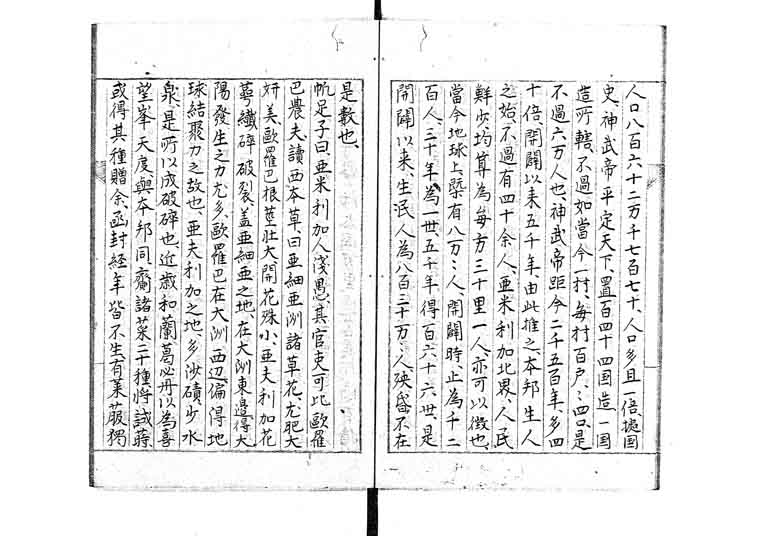 人口八百六十二万千七百七十、人口多且一倍、據国
史、神武帝平定天下、置百四十四国造、一国
造所轄、不過如當今一村、毎村百戸、々四口、是
不過六万人也、神武帝距今二千五百年、多四
十倍、開闢以来五千年、由此推之、本邦生人
之始、不過有四十余人、亜米利加北界、人民
鮮少、均算為毎方三十里一人、亦可以徴也、
當今地球上槩有八万々人、開闢時、止為千二
百人、三十年為一世、五千年得百六十六世、是
開闢以来、生泯人為八百三十万々人、殃昏不在
是數也、
帆足子曰、亜米利加人淺愚、其官吏可比歐羅
巴農夫、讀西本草、曰、亜細亜洲諸草花、尤肥大
妍美、歐羅巴根莖壮大、開花殊小、亜夫利加花
萼纖碎破裂、蓋亜細亜之地、在大洲東邊、得太
陽發生之力尤多、歐羅巴在大洲西辺、偏得地
球結聚力之故也、亜夫利加之地、多沙磧、少水
泉、是所以成破碎也、近歳和蘭葛必丹以為喜
望峯天度與本邦同、齎諸菜二十種、将試蒔、
或得其種贈余、函封経年、皆不生、有莱菔獨